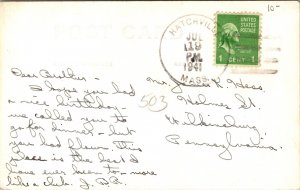 10-
HATCHVILLE
JUL
19
PM
1941
MASS.
UNITED
STATES
POSTAGE
1 CENT 1
Dear Buddy -
I hope you had
a nice birthday -
we called you to
go for dinner - but
you had flown. This
place is the best I
have ever been to - more
like a club. J.
503
Mr. James K. Hess
Holmes St.
Wilkinsburg
Pennsylvania.